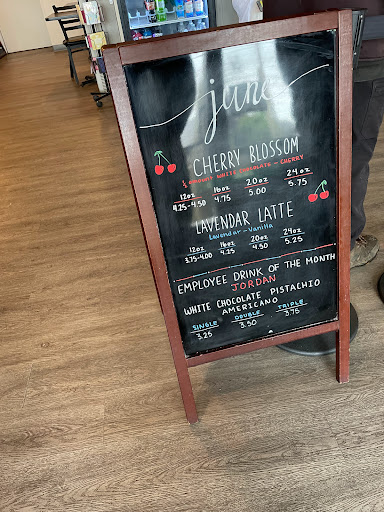 june
CHERRY BLOSSOM
WHITE CHOCOLATE - CHERRY
12oz 16oz 20oz 24oz
4.25-4.50 4.75 5.00 5.75
LAVENDAR LATTE
Lavendar-Vanilla
12oz 16oz 20oz 24oz
3.75-4.00 4.25 4.50 5.25
EMPLOYEE DRINK OF THE MONTH
JORDAN
WHITE CHOCOLATE PISTACHIO
AMERICANO
SINGLE DOUBLE TRIPLE
3.25 3.50 3.75